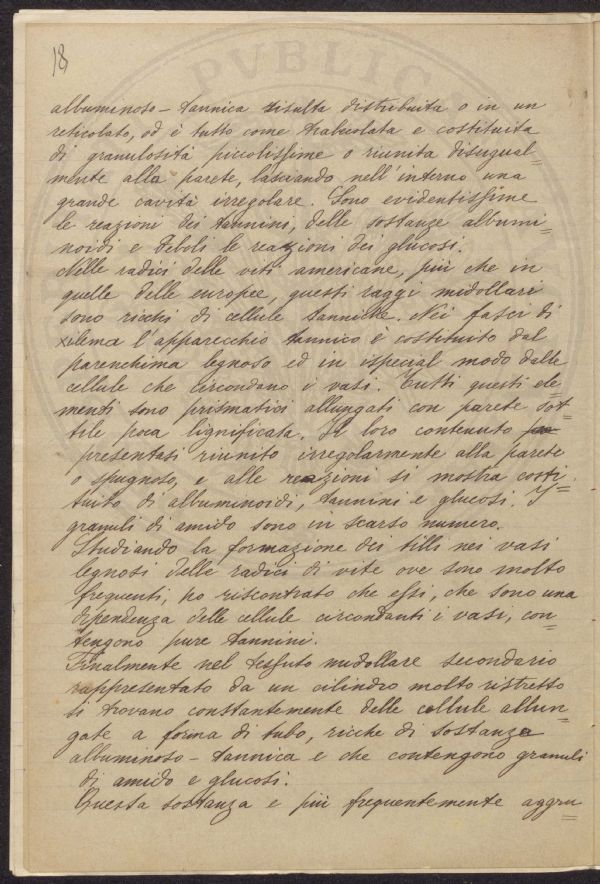 18
PVBLICA
albuminoso-tannica risulta distribuita o in un
reticolato, od è tutto come trabeolata e costituita
di granulosità piccolissime o riunita disugual=
mente alla parete, lasciando nell'interno una
grande cavità irregolare. Sono evidentissime
le reazioni dei tannini, delle sostanze albumi=
noidi e deboli le reazioni dei glucosi.
Nelle radici delle viti americane, più che in
quelle delle europee, questi raggi midollari
sono ricchi di cellule tanniche. Nei fasci di
xilema l'apparecchio tannico è costituito dal
parenchima legnoso ed in ispecial modo dalle
cellule che circondano i vasi. Tutti questi ele
menti sono prismatici allungati con parete sot=
tile poca lignificata. Il loro contenuto
presentasi riunito irregolarmente alla parete
o spugnoso, e alle reazioni si mostra costi
tuito di albuminoidi, tannini e glucosi. I=
granuli di amido sono in scarso numero.
Studiando la formazione dei tilli nei vasi
legnosi delle radici di vite ove sono molto
frequenti, ho riscontrato che essi, che sono una
dipendenza delle cellule circondanti i vasi, con=
tengono pure tannini.
Finalmente nel tessuto midollare secondario
rappresentato da un cilindro molto ristretto
si trovano constantemente delle cellule allun=
gate a forma di tubo, ricche di sostanza
albuminoso-tannica e che contengono granuli
di amido e glucosi.
Questa sostanza e più frequentemente aggru=